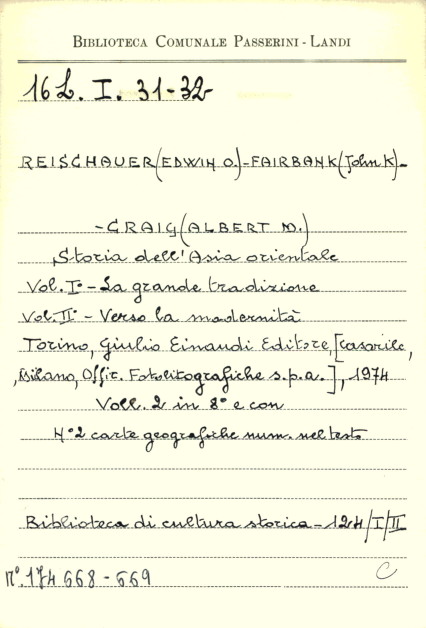 BIBLIOTECA COMUNALE PASSERINI - LANDI
16 L. I. 31-32
REISCHAUER (EDWIN O.) - FAIRBANK (John K) -
- CRAIG (ALBERT M.)
Storia dell'Asia orientale
Vol. I° - La grande tradizione
Vol. II° - Verso la modernità
Torino, Giulio Einaudi Editore, [Casarile,
Milano, Offic. Fotolitografiche s.p.a.], 1974
Voll. 2 in 8° e con
N° 2 carte geografiche num. nel testo
Biblioteca di cultura storica - 124/I/II
n°. 174 668 - 669
C